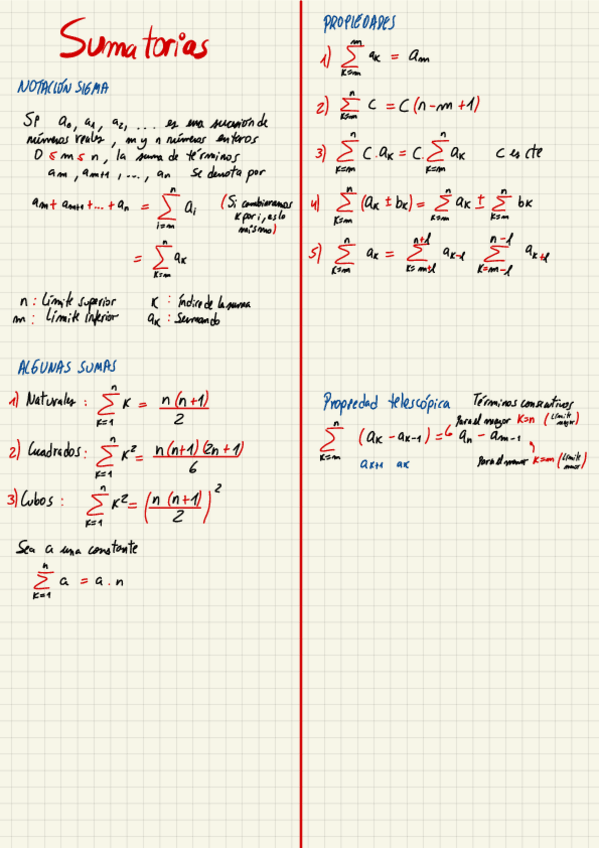 Sumatorias
NOTACIÓN SIGMA
Sp a₀, a₁, a₂, ... es una sucesión de
números reales, m y n números enteros
0 ≤ m ≤ n, la suma de términos
aₘ, aₘ₊₁, ..., aₙ se denota por
aₘ + aₘ₊₁ + ... + aₙ = ∑_{i=m}^{n} aᵢ (Si cambiaramos
k por i, es lo
mismo)
= ∑_{k=m}^{n} aₖ
n : Límite superior K : índice de la suma
m : Límite inferior aₖ : Sumando
ALGUNAS SUMAS
1) Naturales : ∑_{k=1}^{n} K = n(n+1)/2
2) Cuadrados : ∑_{k=1}^{n} K² = n(n+1)(2n+1)/6
3) Cubos : ∑_{k=1}^{n} K² = (n(n+1)/2)²
Sea a una constante
∑_{k=1}^{n} a = a . n
PROPIEDADES
1) ∑_{k=m}^{m} aₖ = aₘ
2) ∑_{k=m}^{n} C = C(n-m+1)
3) ∑_{k=m}^{n} C.aₖ = C.∑_{k=m}^{n} aₖ C es cte
4) ∑_{k=m}^{n} (aₖ ± bₖ) = ∑_{k=m}^{n} aₖ ± ∑_{k=m}^{n} bₖ
5) ∑_{k=m}^{n} aₖ = ∑_{k=m+l}^{n+l} a_{k-l} ∑_{k=m-l}^{n-l} a_{k+l}
Propiedad telescópica Términos consecutivos
Para el mayor K=n (Límite mayor)
∑_{k=m}^{n} (aₖ - aₖ₋₁) = aₙ - aₘ₋₁
aₖ₊₁ aₖ Para el menor K=m (Límite menor)